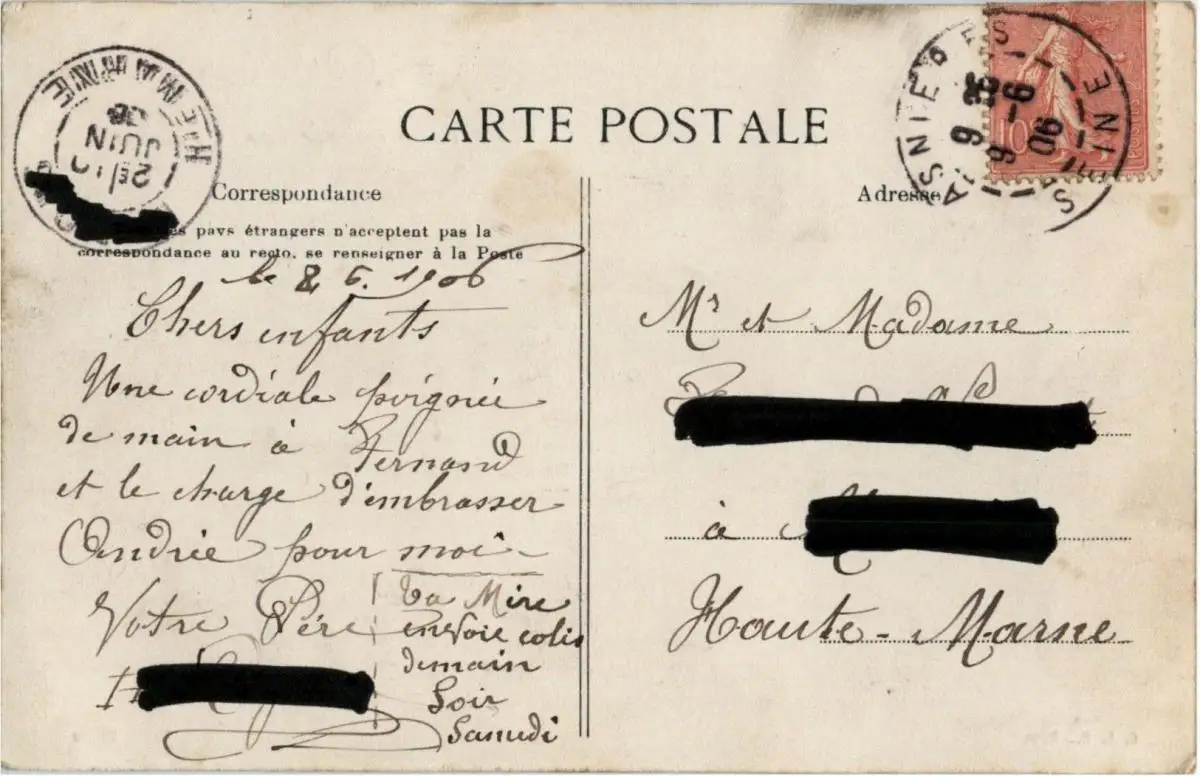 CARTE POSTALE
Correspondance
pays étrangers n'acceptent pas la
correspondance au recto, se renseigner à la Poste
le 8 6. 1906
Chers enfants
Une cordiale poignée
de main à Fernand
et le charge d'embrasser
Andrée pour moi
Votre Père
Ta Mère
envoie colis
demain
Soir
Samedi
Adresse
Mr et Madame
à
Haute-Marne
ASNIERES
SEINE
8-6
06
10
POSTES
HTE MARNE
JUIN
06